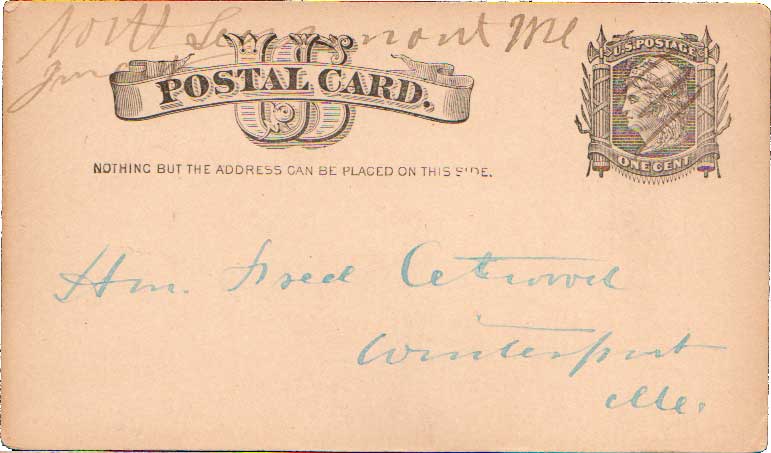 North Searsmont Me
POSTAL CARD.
U.S. POSTAGE
ONE CENT
NOTHING BUT THE ADDRESS CAN BE PLACED ON THIS SIDE.
Hon. Fred Atwood
Winterport
Me.